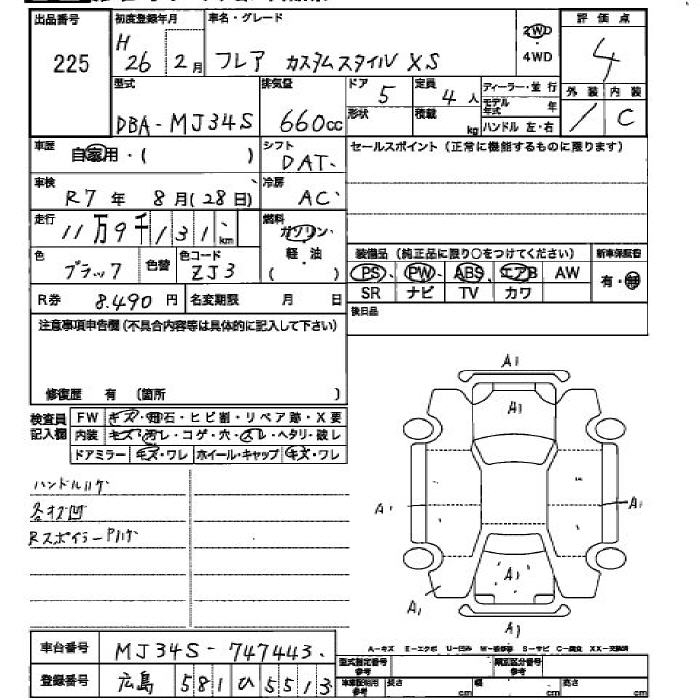 出品番号 初度登録年月 車名・グレード 2WD・4WD 評価点
225 H26 2月 フレア カスタムスタイル XS 4
型式 DBA-MJ34S 排気量 660cc ドア 5 形状 定員 4人 積載 kg ディーラー・並行 モデル年式 年 ハンドル 左・右 外装 / 内装 C
車歴 自家用・( ) シフト DAT、 セールスポイント(正常に機能するものに限ります)
車検 R7年 8月(28日) 冷房 AC、
走行 11万9千131、km 燃料 ガソリン・軽・油 ( )
色 ブラック 色替 色コード ZJ3
装備品(純正品に限り○をつけてください) 新車保証書
PS PW ABS エアB AW 有・無
SR ナビ TV カワ
R券 8.490円 名変期限 月 日
後日品
注意事項申告欄(不具合内容等は具体的に記入して下さい)
修復歴 有 (箇所 )
検査員記入欄 FW キズ・飛石・ヒビ割・リペア跡・X要
内装 キズ・汚レ・コゲ・穴・スレ・ヘタリ・破レ
ドアミラー キズ・ワレ ホイール・キャップ キズ・ワレ
ハンドルハゲ
Rスポイラー Pハゲ
A1
A1
A1 A1
A1
A1
A1
A-キズ E-エクボ U-凹み W-補修跡 S-サビ C-腐食 XX-交換済
車台番号 MJ34S-747443、
登録番号 広島 581 ひ 5513
型式指定番号参考 類別区分番号参考
車庫証明用参考 長さ cm 幅 cm 高さ cm